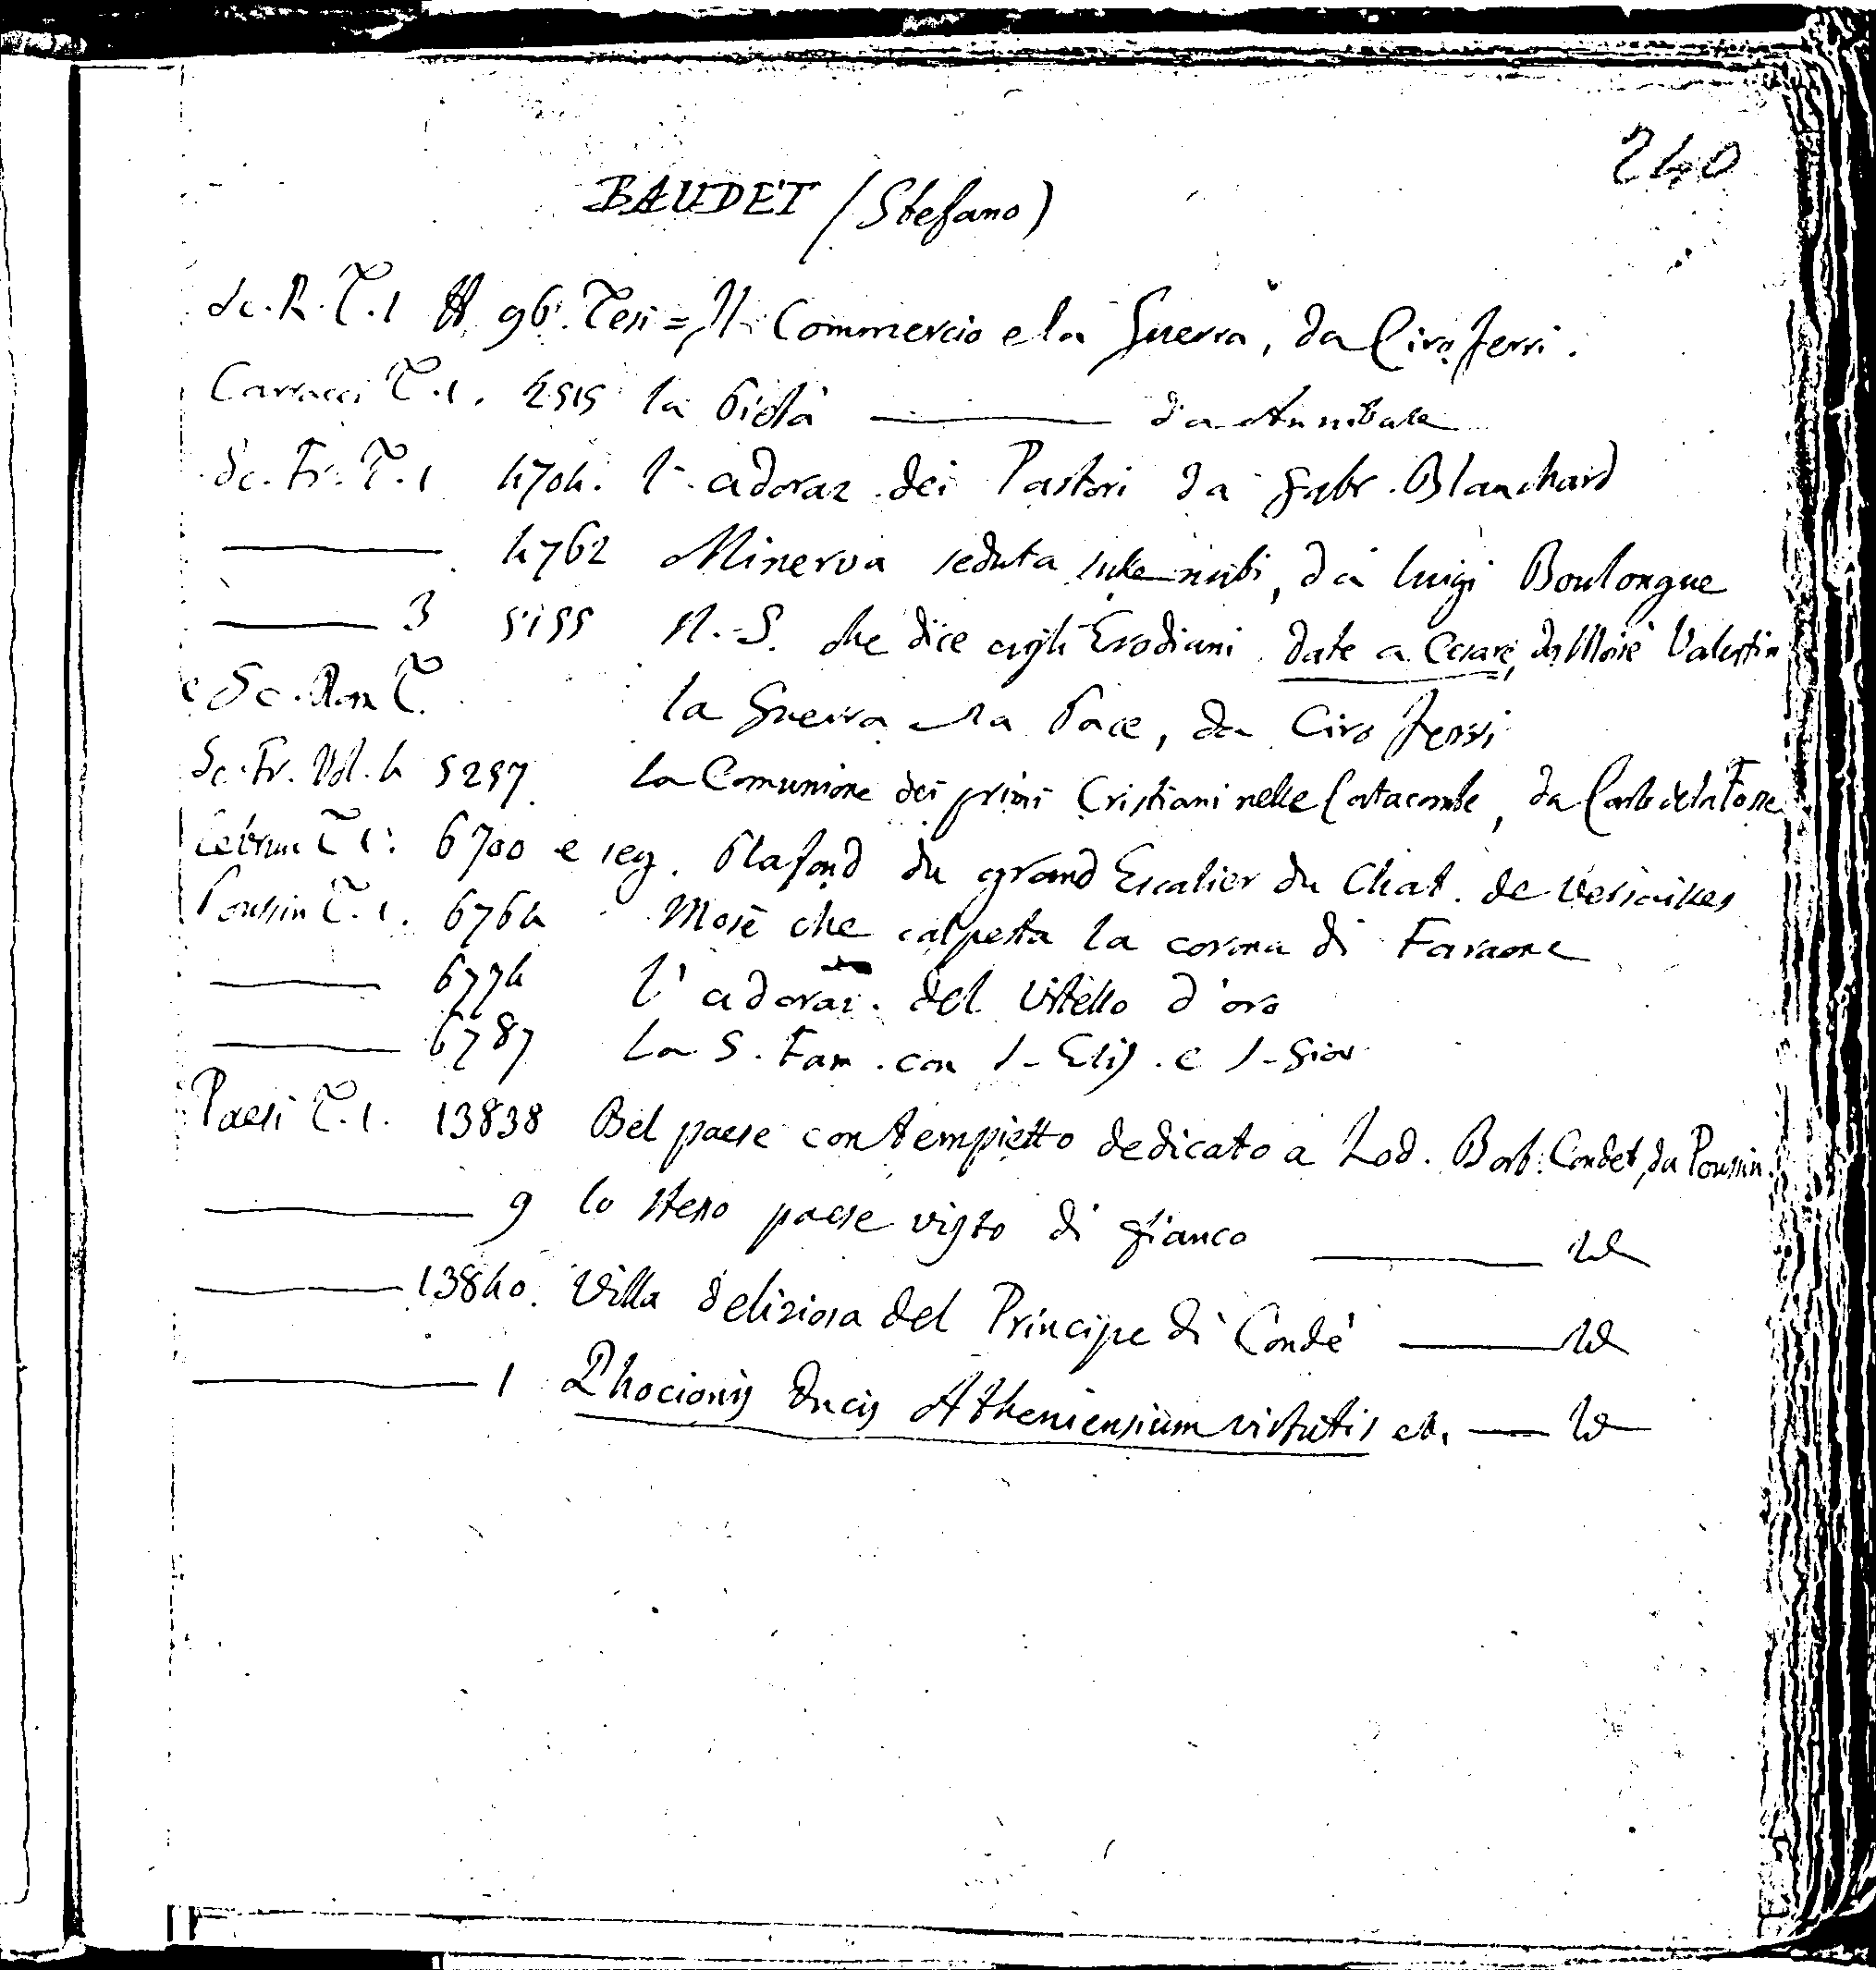 240
BAUDET (Stefano)
Sc. R. T. 1 96. Tesi = Il Commercio e la Guerra, da Ciro Ferri.
Carracci T. 1. 4515 la Pietà — da Annibale
Sc. Fr. T. 1 4704. l'adoraz. dei Pastori da Gabr. Blanchard
— 4762 Minerva seduta sulle nubi, da Luigi Boulongue
— 3 5155 N. S. che dice agli Erodiani date a Cesare, da Moisè Valentin
e Sc. Rom T. la Guerra e la Pace, da Ciro Ferri
Sc. Fr. Vol. 4 5257 la Comunione dei primi Cristiani nelle Catacombe, da Carlo de la Fosse
Lebrun T. 1: 6700 e seg. Plafond du grand Escalier du Chat. de Versailles
Poussin T. 1. 6764 Mosè che calpesta la corona di Faraone
— 6774 l'adoraz. del Vitello d'oro
— 6787 La S. Fam. con S. Elis. e S. Giov.
Paesi T. 1. 13838 Bel paese con tempietto dedicato a Lod. Borb. Condet, da Poussin.
— 9 lo stesso paese visto di fianco — Id
— 13840. Villa deliziosa del Principe di Condé — Id
— 1 Phocionis Ducis Atheniensium virtutis etc. — Id